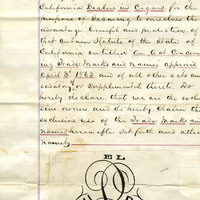 California Dealers in Cigars for the
purpose of securing to ourselves the
advantage benefit and protection of
that certain Statute of the State of
California entitled An Act Concern
ing Trade Marks and Names approved
April 3d 1863 and of all other acts am
endatory or Supplemental thereto Do
hereby declare that we are the exclu
sive owners and do hereby claim the
exclusive use of the Trade Mark and
name hereinafter set forth and attac
Namely
EL